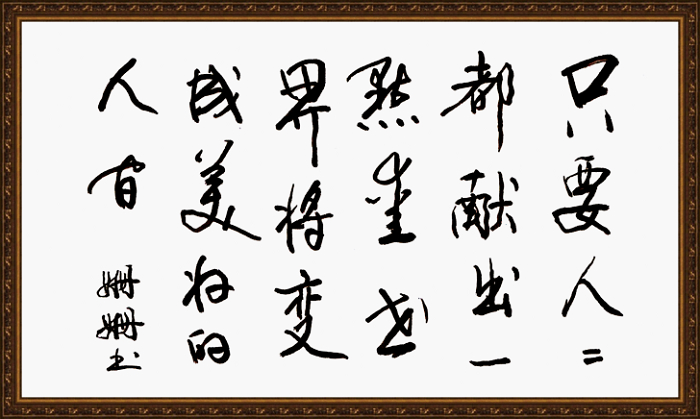 只要人人
都献出一
點爱世
界将变
成美好的
人间
姗姗书